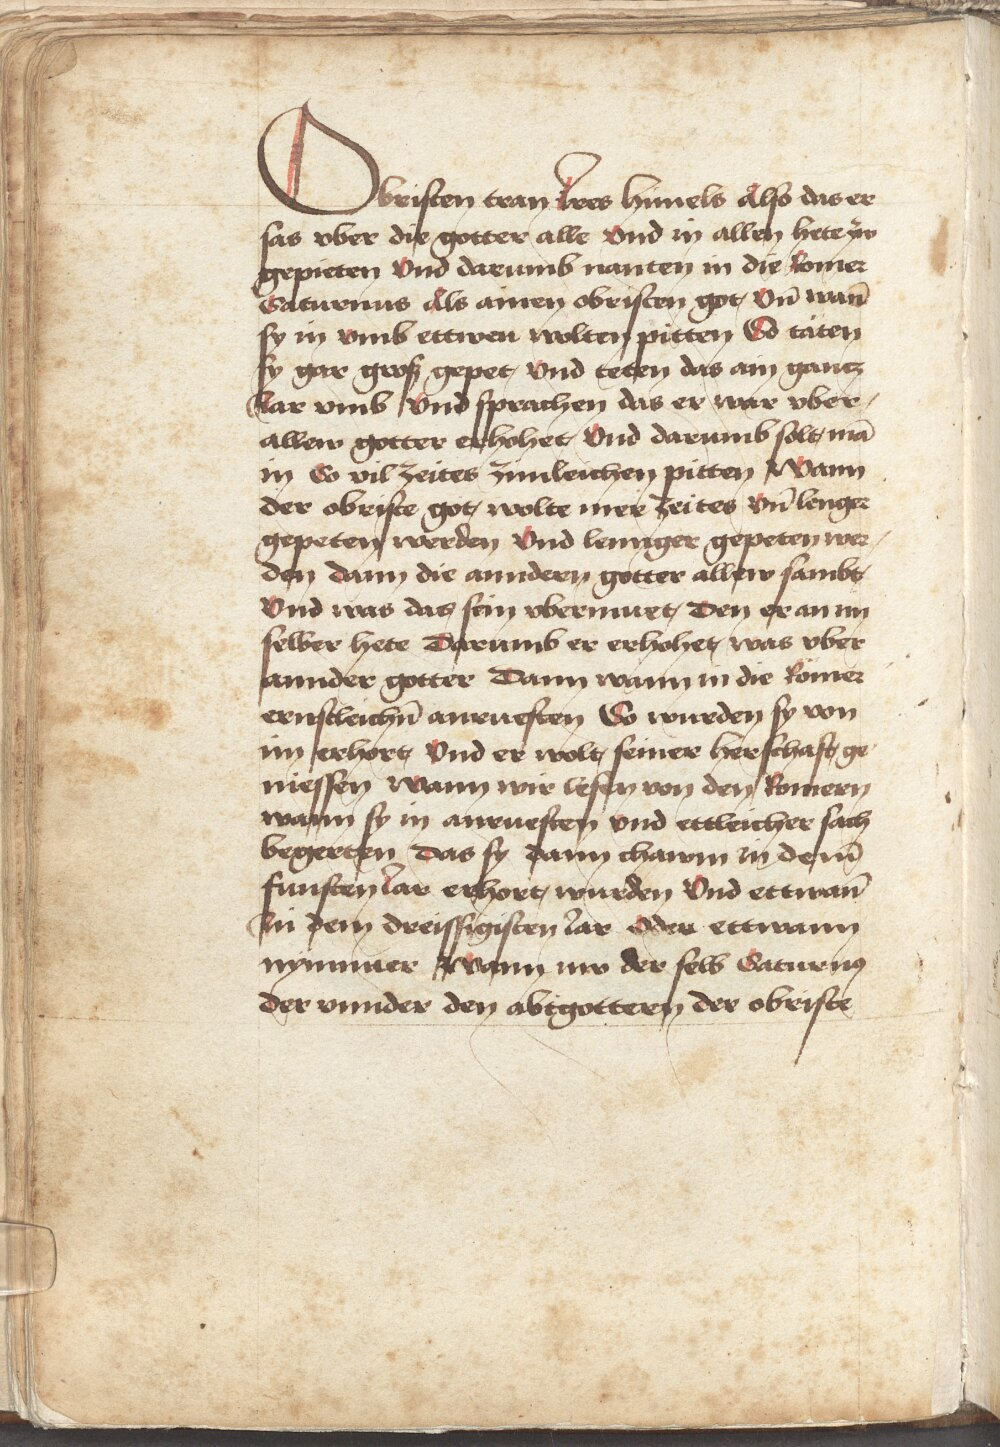 Obristen tran Ires himels Also das er
sas vber die gotter alle Vnd in allen hete zw
gepieten Vnd darumb nanten in die Romer
Saturnus Als ainen obristen got Vn̄ wan̄
sy in vmb ettwen wolten pitten So täten
sy gar groß gepet Vnd teten das ain gancz
Iar vmb Vnd sprachen das er wär vber
allew gotter erhohet Vnd darumb solt mā
in So vil zeites zimleichen pitten Wann
der obriste got wolte mer zeites vn̄ lenger
gepeten werden Vnd lennger gepeten wer
den dann die anndern gotter allew sambt
Vnd was das sein vbermuet Den er an im
selber hete Darumb er erhohet was vber
annder gotter Dann wann in die Römer
ernstleichn̄ anruefften So wurden sy von
im erhort Vnd er wolt seiner herschafft ge
niessen Wann wir lesen von den Romern
wann sy in anruefften vnd ettleicher sach
begerten Das sy dann chawm in dem̄
funften Iar erhort wurden Vnd ettwan̄
In dem dreissigisten Iar Oder ettwann
nymmer Wann nw der selb Saturnus
der vnnder den abtgottern der obriste